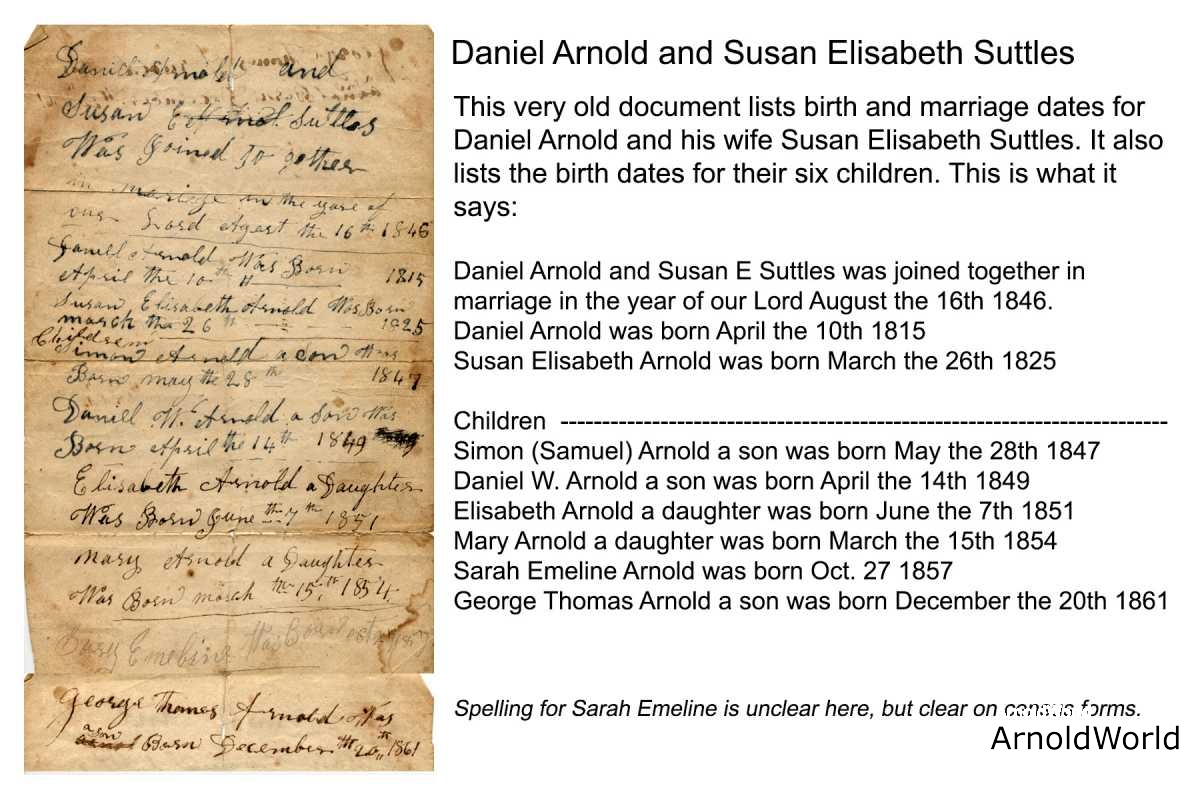 Daniel Arnold and
Susan E Suttles
Was Joined To gether
in mariage in the yare of
our Lord Agast the 16th 1846
Daniel Arnold Was Born
April the 10th 1815
Susan Elisabeth Arnold Was Born
march the 26th 1825
Childrem
Simon Arnold a Son Was
Born may the 28th 1847
Daniell W. Arnold a Son Was
Born April the 14th 1849
Elisabeth Arnold a Daughter
Was Born June the 7th 1851
Mary Arnold a Daughter
Was Born march the 15th 1854
Emeline Was
George thomas Arnold Was
a son
Born December th 20th 1861
Daniel Arnold and Susan Elisabeth Suttles
This very old document lists birth and marriage dates for
Daniel Arnold and his wife Susan Elisabeth Suttles. It also
lists the birth dates for their six children. This is what it
says:
Daniel Arnold and Susan E Suttles was joined together in
marriage in the year of our Lord August the 16th 1846.
Daniel Arnold was born April the 10th 1815
Susan Elisabeth Arnold was born March the 26th 1825
Children ------------------------------------------------------------------------
Simon (Samuel) Arnold a son was born May the 28th 1847
Daniel W. Arnold a son was born April the 14th 1849
Elisabeth Arnold a daughter was born June the 7th 1851
Mary Arnold a daughter was born March the 15th 1854
Sarah Emeline Arnold was born Oct. 27 1857
George Thomas Arnold a son was born December the 20th 1861
Spelling for Sarah Emeline is unclear here, but clear on census forms.
ArnoldWorld